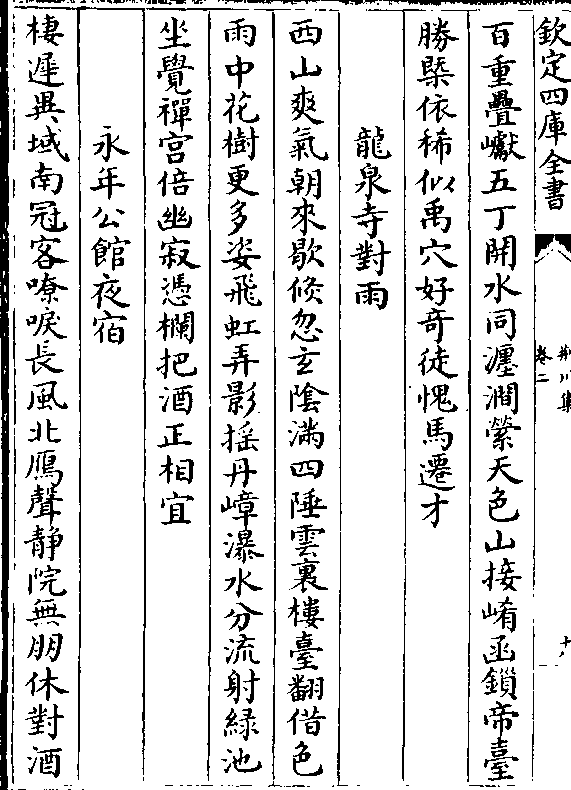 欽定四庫全書
荆川集
卷二
百重疊巘五丁開水同瀍澗縈天色山接崤函鎖帝臺
勝槩依稀似禹穴好奇徒愧馬遷才
龍泉寺對雨
西山爽氣朝來歇倐忽玄陰滿四陲雲裏樓臺翻借色
雨中花樹更多姿飛虹弄影揺丹嶂瀑水分流射緑池
坐覺禪宫倍幽寂憑欄把酒正相宜
永年公館夜宿
棲遲異域南冠客嘹唳長風北鴈聲静院無朋休對酒